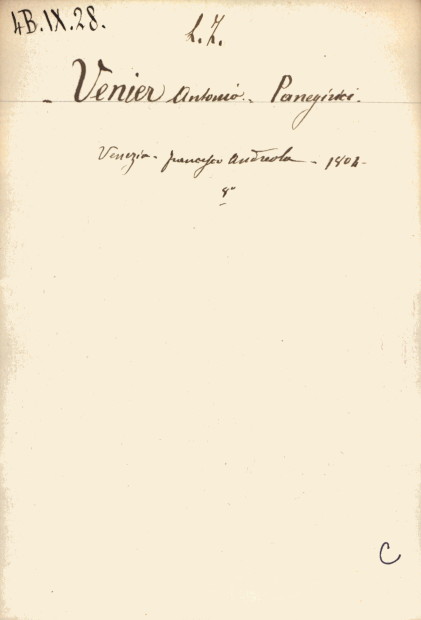 4B.IX.28.
L.Z.
- Venier Antonio - Panegirici.
Venezia - Francesco Andreola - 1804 -
8°
C